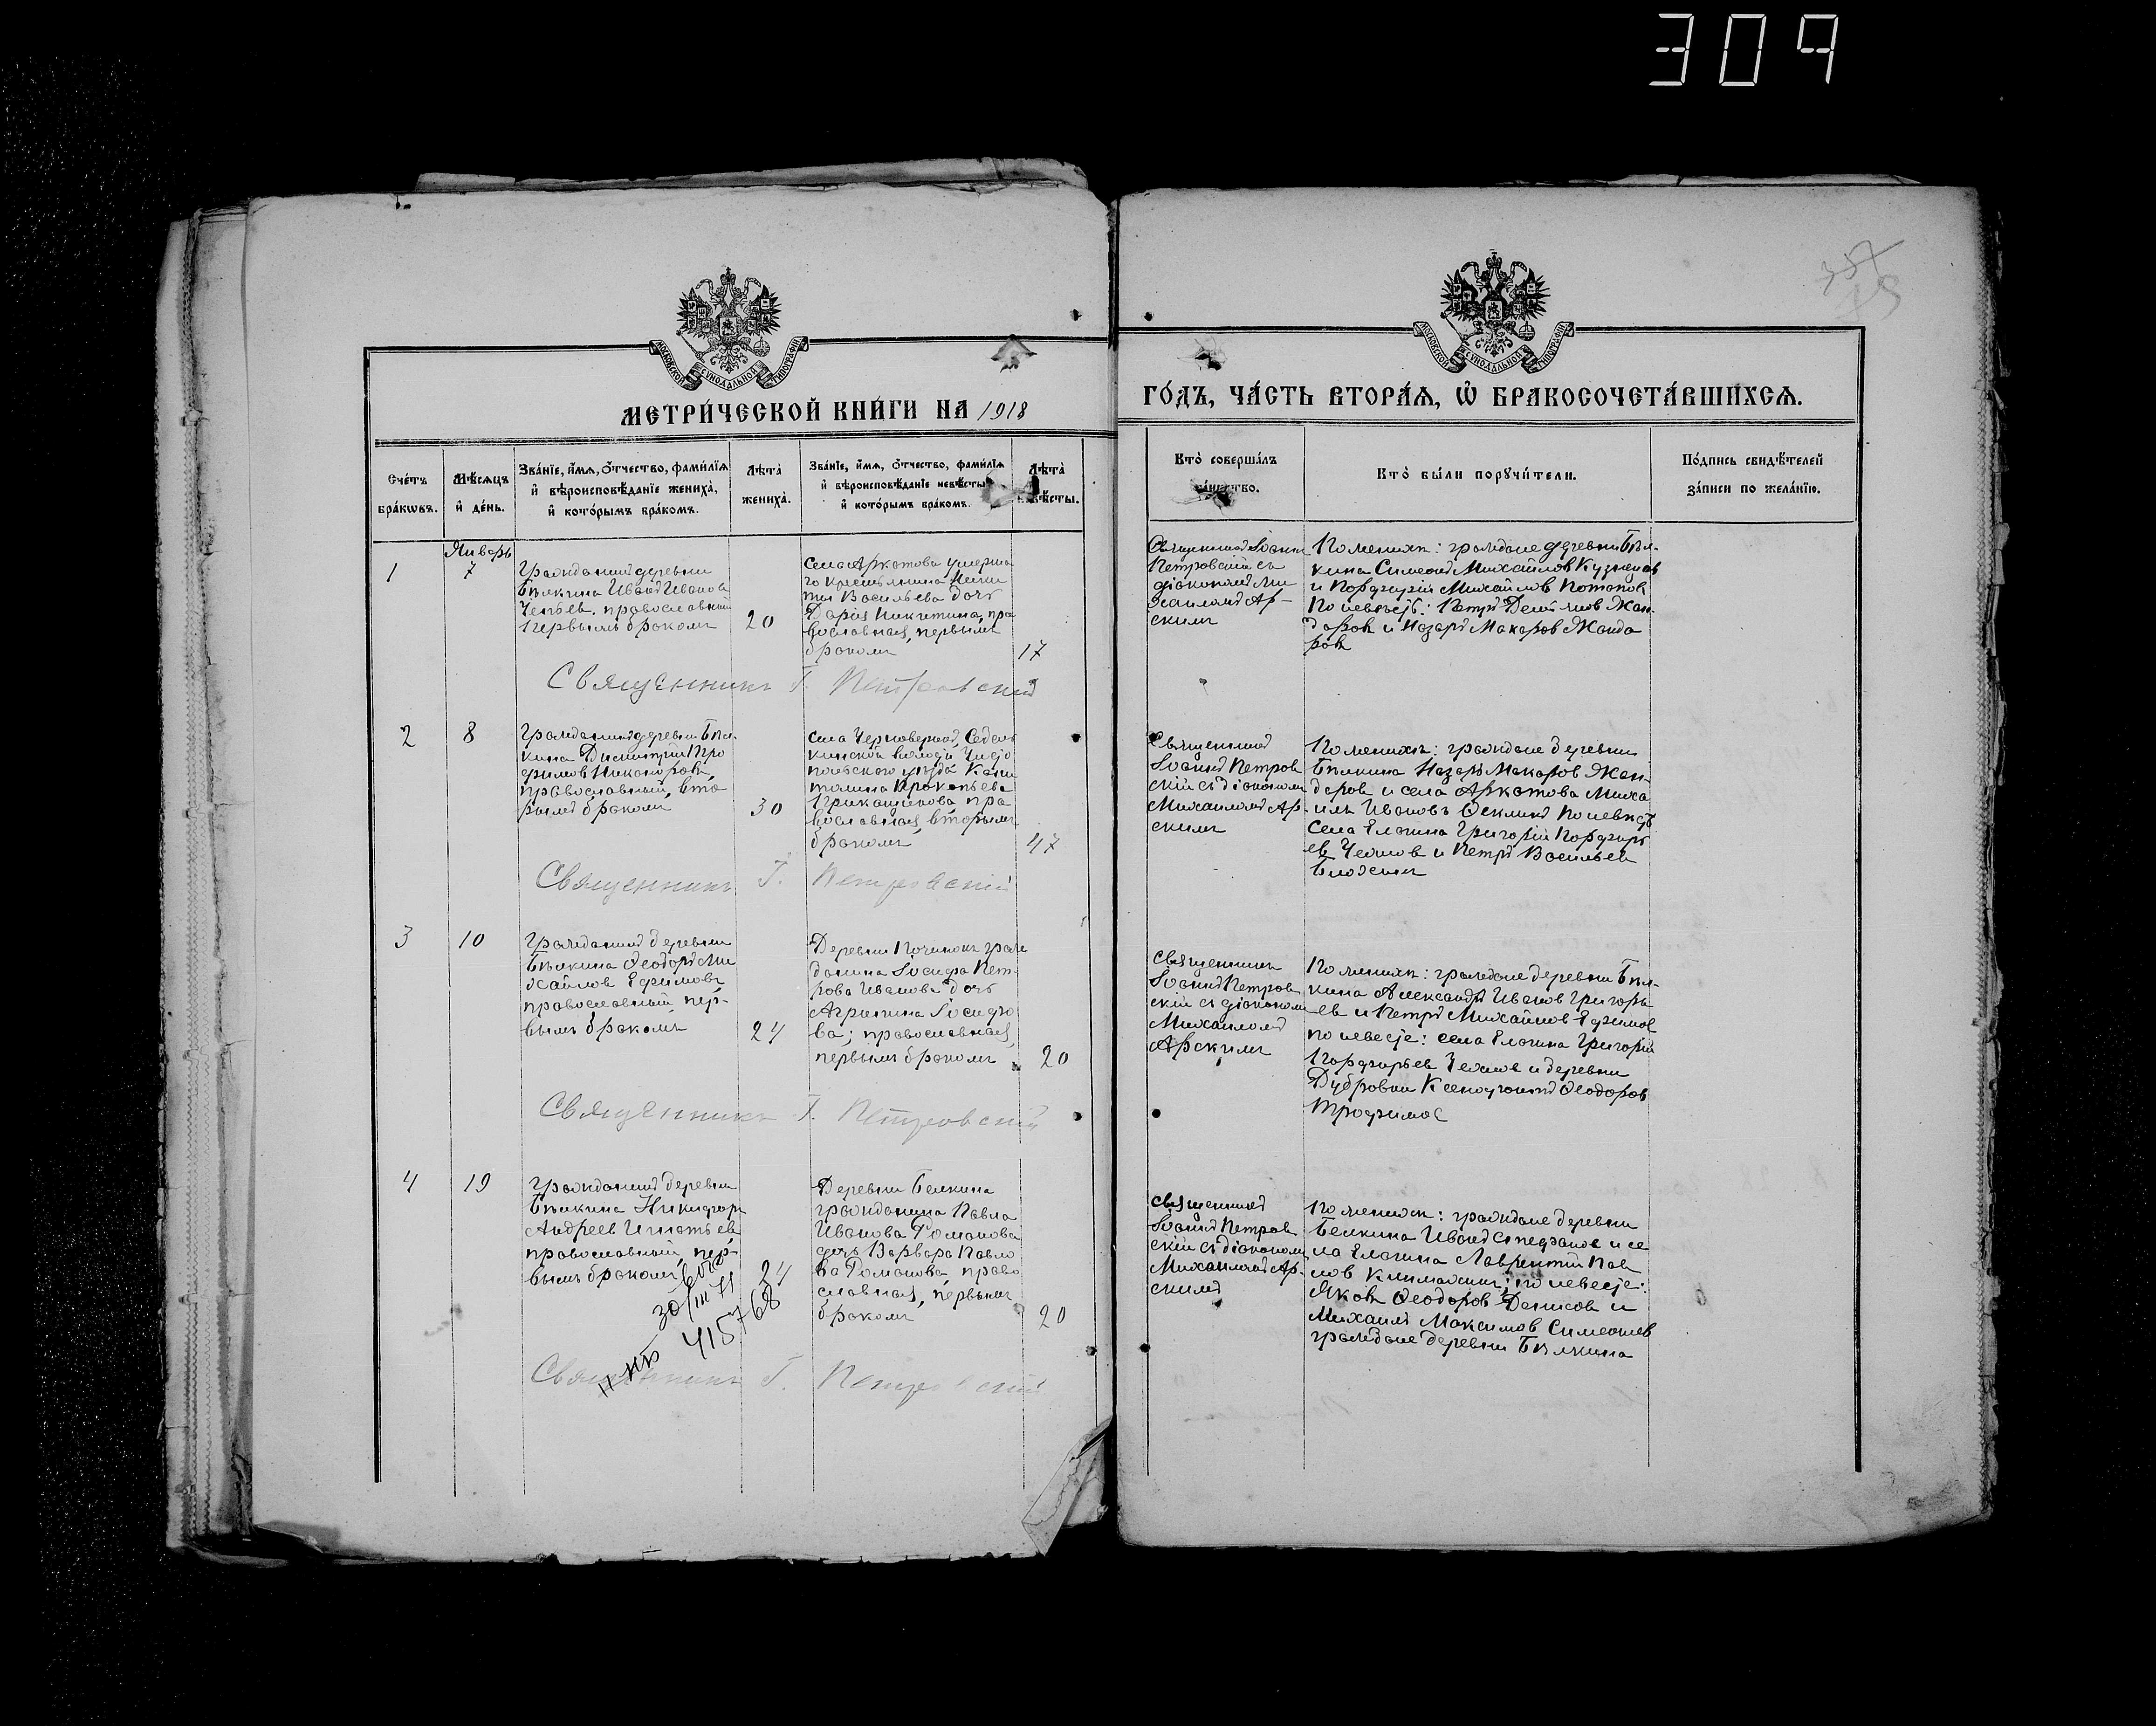 309
357
МОСКОВСКОЙ СУНОДАЛЬНОЙ ТИПОГРАФІИ
МОСКОВСКОЙ СУНОДАЛЬНОЙ ТИПОГРАФІИ
МЕТРИ́ЧЕСКОЙ КНИ́ГИ НА 1918
ГО́ДЪ, ЧА́СТЬ ВТОРА́Я, Ѡ БРАКОСОЧЕТА́ВШИХСЯ.
Сче́тъ
бра́кѡвъ.
Мѣ́сяцъ
и де́нь.
Зва́ніе, и́мя, ѻ́тчество, фами́лїя
и вѣроисповѣ́данїе жениха̀,
и кото́рымъ бра́комъ.
Лѣта̀
жениха̀.
Зва́нїе, и́мя, ѻ́тчество, фами́лїя
и вѣроисповѣ́данїе невѣ́сты
и кото́рымъ бракомъ.
Лѣта̀
невѣ́сты.
Кто̀ соверша́лъ
та́инство.
Кто̀ бы́ли порꙋчи́тели.
По́дпись свидѣ́телей
за́писи по жела́нїю.
Январь
1
7
Гражданинъ деревни
Бѣлкина Иванъ Иванов
православный
первымъ бракомъ
20
Села Аркатова умерша
го крестьянина Ники
ты Васильева дочь
Дарія Никитина, пра
вославная, первымъ
бракомъ
17
Священникъ Іоаннъ
Петровскій съ
діакономъ Ми
хаиломъ Ар-
скимъ
По женихѣ: граждане деревни Бѣл-
кина Симеонъ Михайлов Кузнецов
и Порфирій Михайлов Потапов
По невѣстѣ: Петръ Жан-
даров и Назаръ Макаров Жанда
ров
Священникъ І. Петровскій
2
8
Гражданинъ деревни Бѣл
кина Димитрій Тро
фимов Никаноров,
православный, вто
рымъ бракомъ
30
Села
кинской волости Чисто
польского уѣзда Капи
толина Прокопьева
пра
вославная, вторымъ
бракомъ
47
Священникъ
Іоаннъ Петров
скій съ діакономъ
Михаиломъ Ар-
скимъ
По женихѣ: граждане деревни
Бѣлкина Назаръ Макаров Жан-
даров и села Аркатова Миха
илъ Ивановъ По невѣстѣ
села Елагина Григорій Порфирь
ев и Петръ Васильев
Священникъ І. Петровскій
3
10
Гражданинъ деревни
Бѣлкина Ѳеодоръ Ми
хайлов Ефимовъ
православный, пер-
вымъ бракомъ
24
Деревни Починокъ граж
данина Іосифа Пет-
рова Иванова дочь
Агрипина Іосифо
ва; православная
первымъ бракомъ
20
Священникъ
Іоаннъ Петров
скій съ діакономъ
Михаиломъ
Арскимъ
По женихѣ: граждане деревни Бѣл-
кина Александръ Иванов Григорь
ев и Петръ Михайлов Ефимов
по невесте: села Елагина Григорій
Порфирьев и деревни
Дубровки Ксенофонтъ Ѳеодоров
Трофимов
Священникъ І. Петровскій
4
19
Гражданинъ деревни
Бѣлкина Никифоръ
Андреев Игнатьев
православный, пер-
вымъ бракомъ
24
Деревни Белкина
гражданина Павла
Иванова Романова
дочь Варвара Павло
ва Романова, право
славная, первымъ
бракомъ
20
Священникъ
Іоаннъ Петров
скій съ діакономъ
Михаиломъ Ар-
скимъ
По женихѣ: граждане деревни
Белкина Иванъ Степанов и се
ла Елагина Лаврентій Пав
лов по невесте:
Яковъ Ѳеодоров Денисов и
Михаилъ Максимов Симеонов
граждане деревни Бѣлкина
30/III 71
415768
Священникъ І. Петровскій